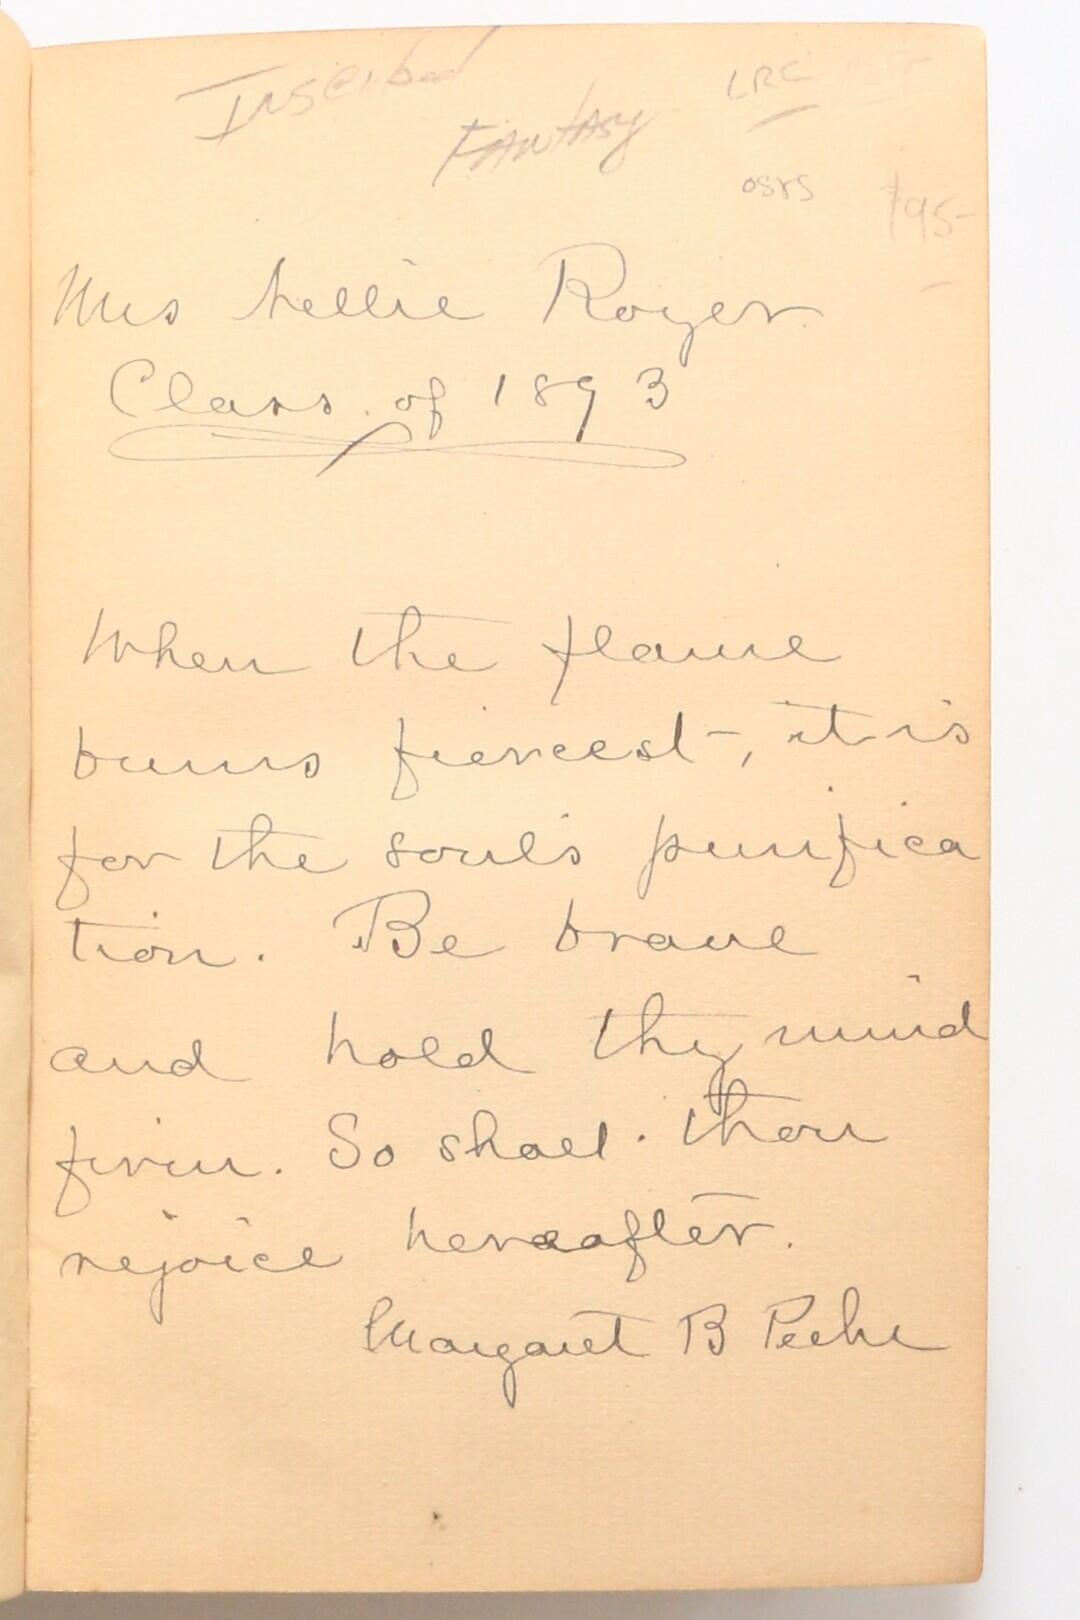 Inscribed
Fantasy
LRC
osrs
$95-
Mrs Nellie Royer.
Class of 1893
When the flame
burns fiercest, it is
for the soul's purifica
tion. Be brave
and hold thy mind
firm. So shall thou
rejoice hereafter.
Margaret B Peeke